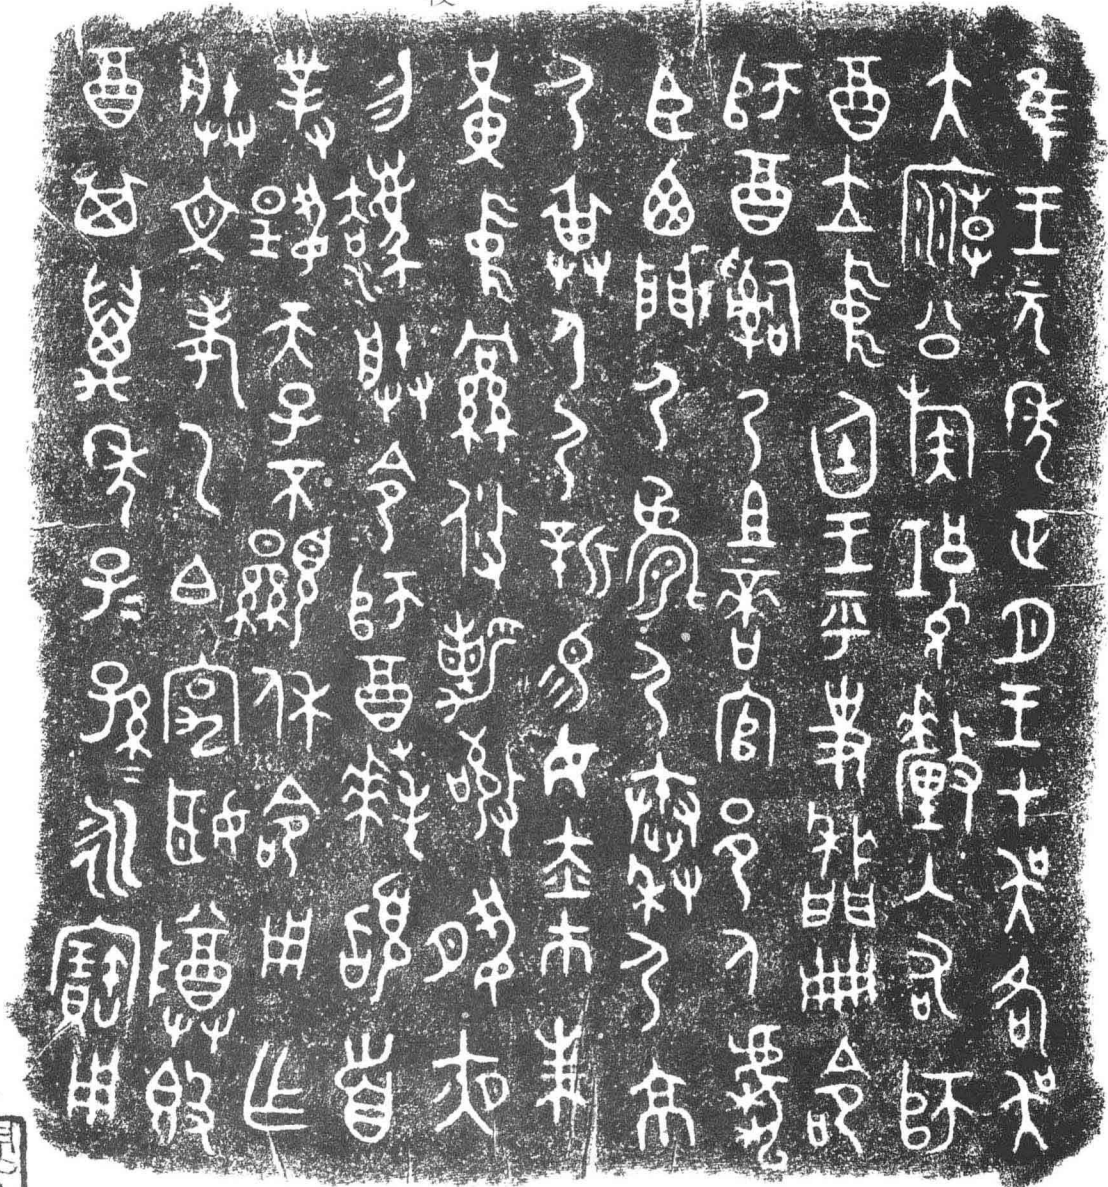 隹王元年正月王才吳各吳
大廟公族釐入右師
酉立中廷王乎史冊命
師酉嗣乃且啻官邑人虎
臣西門尸尸秦尸京
尸身尸新易女赤巿朱
黃中攸勒敬夙夜
勿灋朕令師酉拜首
對揚天子不顯休命用乍
朕文考乙白宮姬尊𣪘
酉其萬年子=孫=永寶用